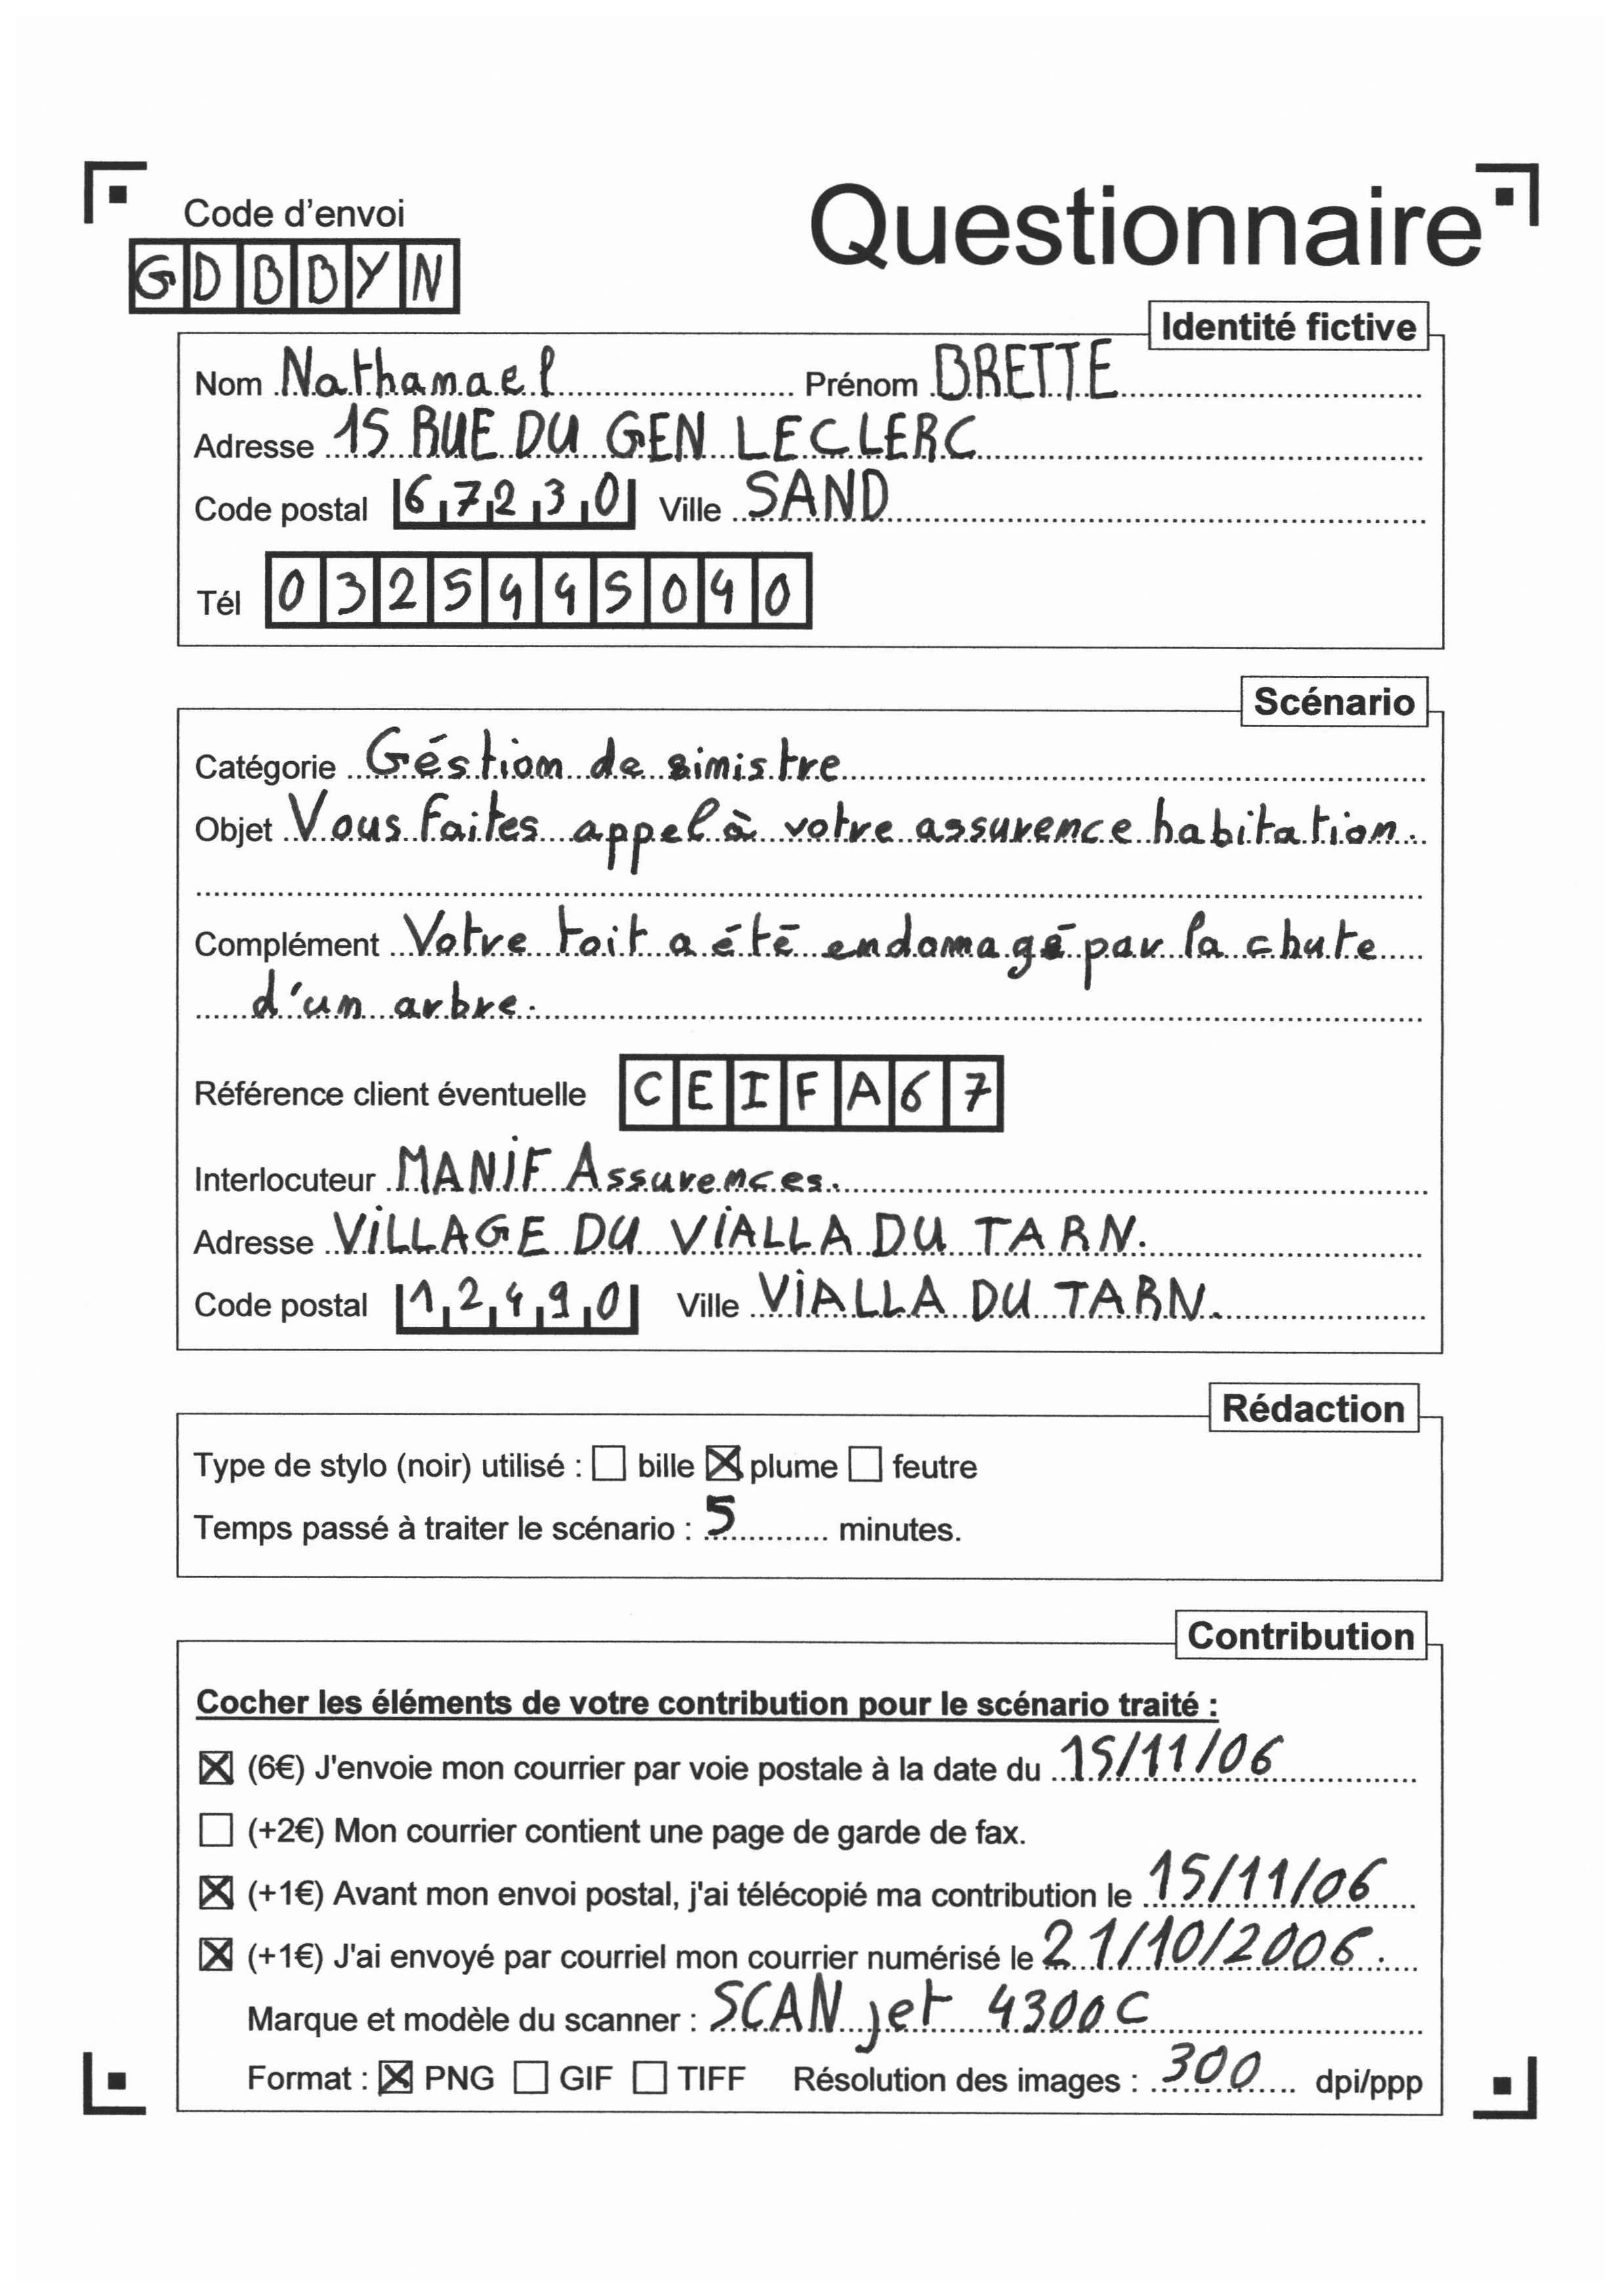 Code d'envoi
Questionnaire
GDBBYN
Identité fictive
Nom Nathanael Prénom BRETTE
Adresse 15 RUE DU GEN LECLERC
Code postal 67230 Ville SAND
Tél 0325445040
Scénario
Catégorie Géstion de sinistre
Objet Vous faites appel à votre assurence habitation.
Complément Votre toit a été endomagé par la chute
d'un arbre.
Référence client éventuelle CEIFA67
Interlocuteur MANIF Assurences.
Adresse VILLAGE DU VIALLA DU TARN.
Code postal 12490 Ville VIALLA DU TARN.
Rédaction
Type de stylo (noir) utilisé : ☐ bille ☒ plume ☐ feutre
Temps passé à traiter le scénario : 5 minutes.
Contribution
Cocher les éléments de votre contribution pour le scénario traité :
☒ (6€) J'envoie mon courrier par voie postale à la date du 15/11/06
☐ (+2€) Mon courrier contient une page de garde de fax.
☒ (+1€) Avant mon envoi postal, j'ai télécopié ma contribution le 15/11/06
☒ (+1€) J'ai envoyé par courriel mon courrier numérisé le 21/10/2006.
Marque et modèle du scanner : SCANjet 4300C
Format : ☒ PNG ☐ GIF ☐ TIFF Résolution des images : 300 dpi/ppp